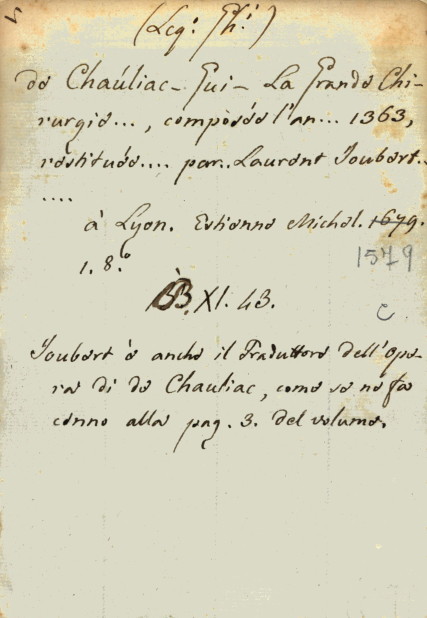 (Leg: Fh:)
de Chauliac - Gui - La Grande Chi-
rurgie..., composée l'an... 1363,
restituée.... par.. Laurent Joubert..
....
à Lyon. Estienne Michel. 1679.
1579
1. 8.°
B. XI. 43.
C
Joubert è anche il Traduttore dell'ope-
ra di de Chauliac, come se ne fa
cenno alla pag. 3. del volume.